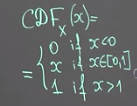 CDF_X(x)=
= { 0 if x<0
x if x∈[0,1]
1 if x>1